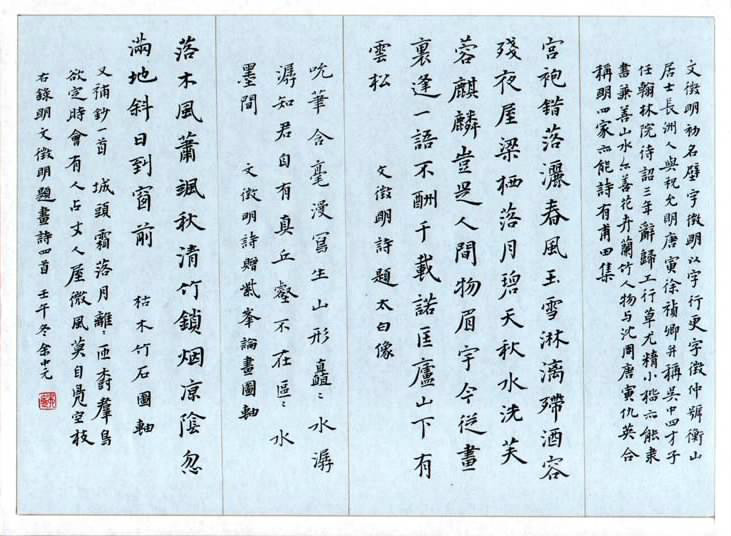 文徵明初名壁字徵明以字行更字徵仲號衡山
居士長洲人與祝允明唐寅徐禎卿并稱吳中四才子
任翰林院待詔三年辭歸工行草尤精小楷亦能隶
書兼善山水亦善花卉蘭竹人物与沈周唐寅仇英合
稱明四家亦能詩有甫田集
宮袍錯落灑春風玉雪淋漓殢酒容
殘夜屋梁栖落月碧天秋水洗芙
蓉麒麟豈是人間物眉宇今從畫
裏逢一語不酬千載諾匡廬山下有
雲松
文徵明詩題太白像
吮筆含毫漫寫生山形矗〻水潺
潺知君自有真丘壑不在區〻水
墨間
文徵明詩贈紫峯論畫圖軸
落木風蕭颯秋清竹鎖烟凉陰忽
滿地斜日到窗前
枯木竹石圖軸
又補鈔一首 城頭霜落月離〻匝樹羣烏
欲定時會有人占丈人屋微風莫自覓空枝
右錄明文徵明題畫詩四首 壬午冬余